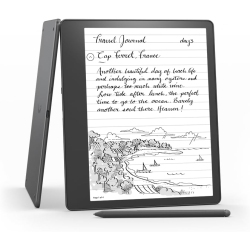 Travel Journal day 5
Cap Ferret, France
Another beautiful day of beach life
and indulging in many oysters and
perhaps too much white wine.
Low tide after lunch, the perfect
time to go to the ocean. Barely
another soul there Heaven!